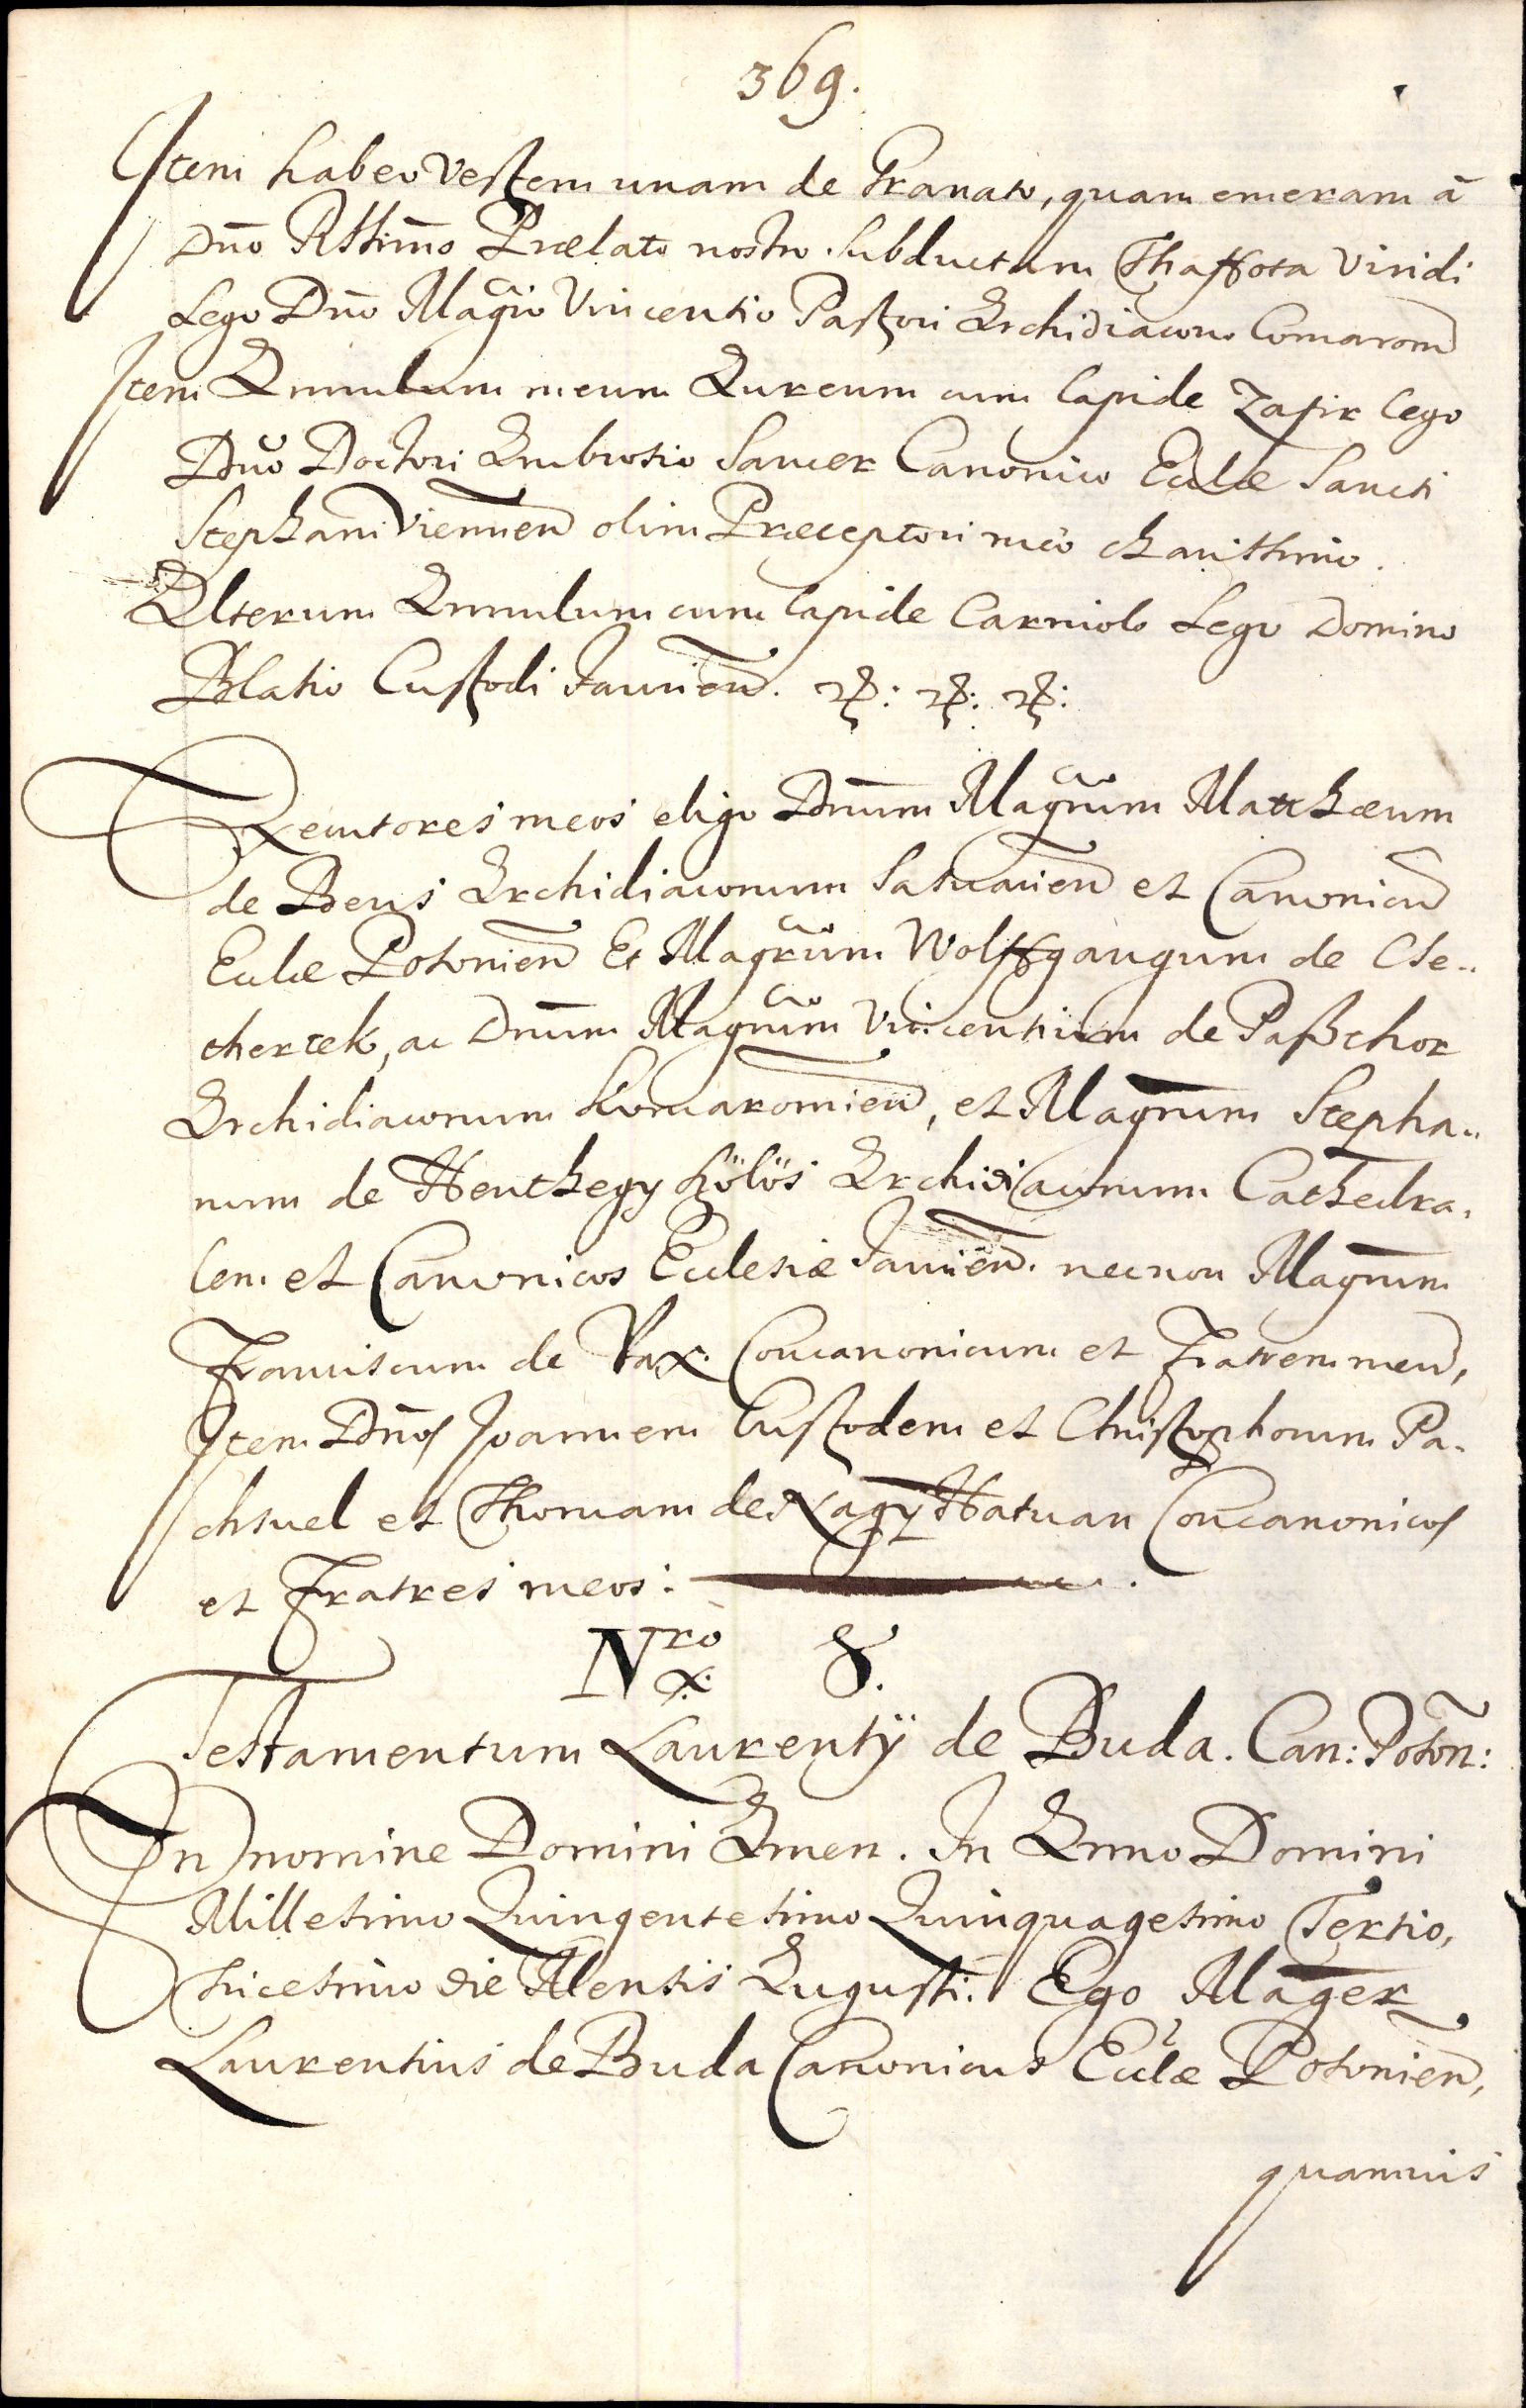 369.
Item habeo Vestem unam de Granato, quam emeram ā
Dn̄o Rttim̄o Prælato nostro subductam Thaffota viridi
Lego Dn̄o Mag̃ro Vincentio Pastori Archidiacono Comarom̄
Item Annulum meum Aureum cum lapide Zafir lego
Dn̄o Doctori Ambrosio Sancer Canonico Eccl̃æ Sancti
Stephani Viennen̄ olim Præceptori meo charitimo.
Alterum Annulum cum lapide Carniolo Lego Domino
Blasio Custodi Jaurien̄.
Exe​cutores meos eligo Dn̄um Mag̃rum Matthæum
de Beus Archidiaconum Sasuarien̄ et Canonicū
Eccl̃æ Posonien̄ Et Mag̃rum Wolffgangum de Cse..
chertek, ac Dn̄um Mag̃rum Vincentium de Paßthor
Archidiaconum Komaromien̄, et Mag̃rum Stepha..
num de Henthegy Kölös Archidiaconum Cathedra.
lem et Canonicos Ecclesiæ Jaurien̄. necnon Mag̃rum
Franciscum de Vax. Concanonicum et Fratrem meū,
Item Dn̄os Joannem Custodem et Christophorum Pa.
chsuel et Thomam de Nagy Hatuan Concanonicos
et Fratres meos:
Nro 8.
Testamentum Laurentÿ de Buda. Can: Poson̄:
In nomine Domini Amen. In Anno Domini
Millesimo Quingentesimo Quinquagesimo Tertio,
tricesimo die Mensis Augusti. Ego Mag̃er
Laurentius de Buda Canonicus Eccl̃æ Posonien̄,
quamuis